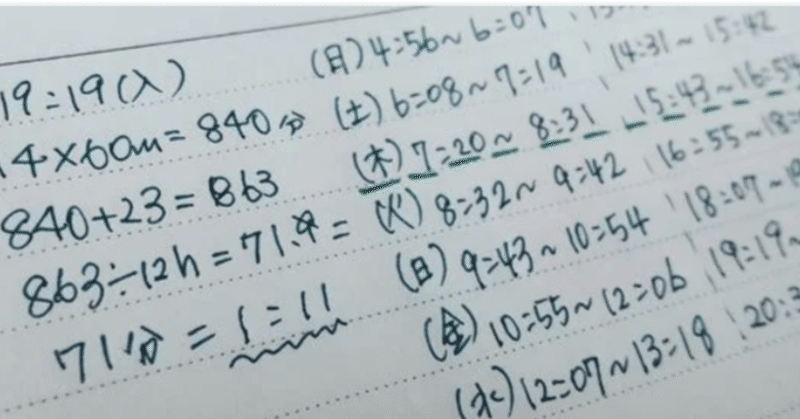 19:19(入)
14×60m = 840分
840+23 = 863
863÷12h = 71.9 =
71分 = 1:11
(月) 4:56~6:07
(土) 6:08~7:19 14:31~15:42
(木) 7:20~8:31 15:43~16:54
(火) 8:32~9:42 16:55~18:0
(日) 9:43~10:54 18:07~19
(金) 10:55~12:06 19:19~
(水) 12:07~13:18 20:3